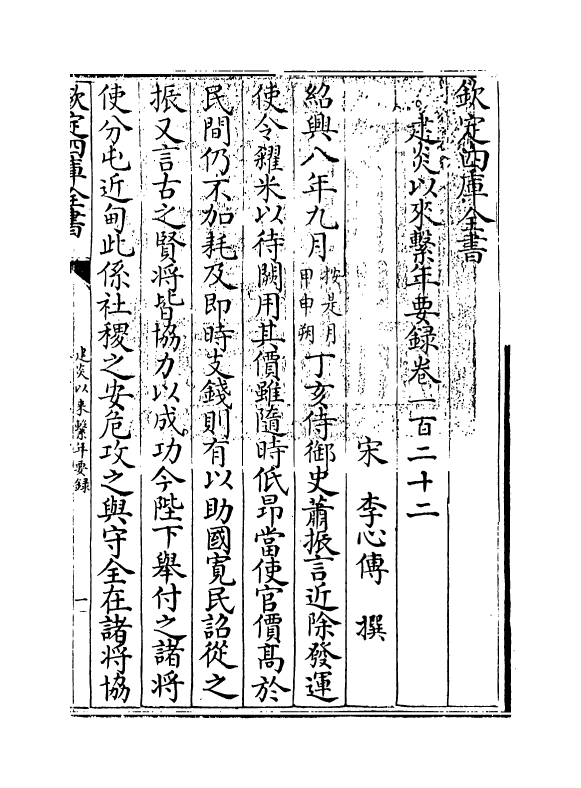 欽定四庫全書
建炎以來繫年要録卷一百二十二
宋 李心傳 撰
紹興八年九月按是月甲申朔丁亥侍御史蕭振言近除發運
使令糴米以待闕用其價雖隨時低昂當使官價髙於
民間仍不加耗及即時支錢則有以助國寛民詔從之
振又言古之賢將皆協力以成功今陛下舉付之諸將
使分屯近甸此係社稷之安危攻之與守全在諸將協
欽定四庫全書
建炎以来繫年要録
一